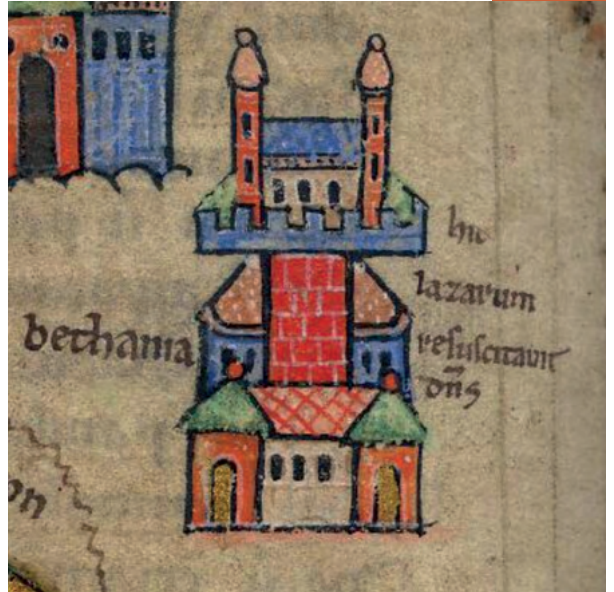 bethania
hic
lazarum
resuscitavit
dn̄s
on